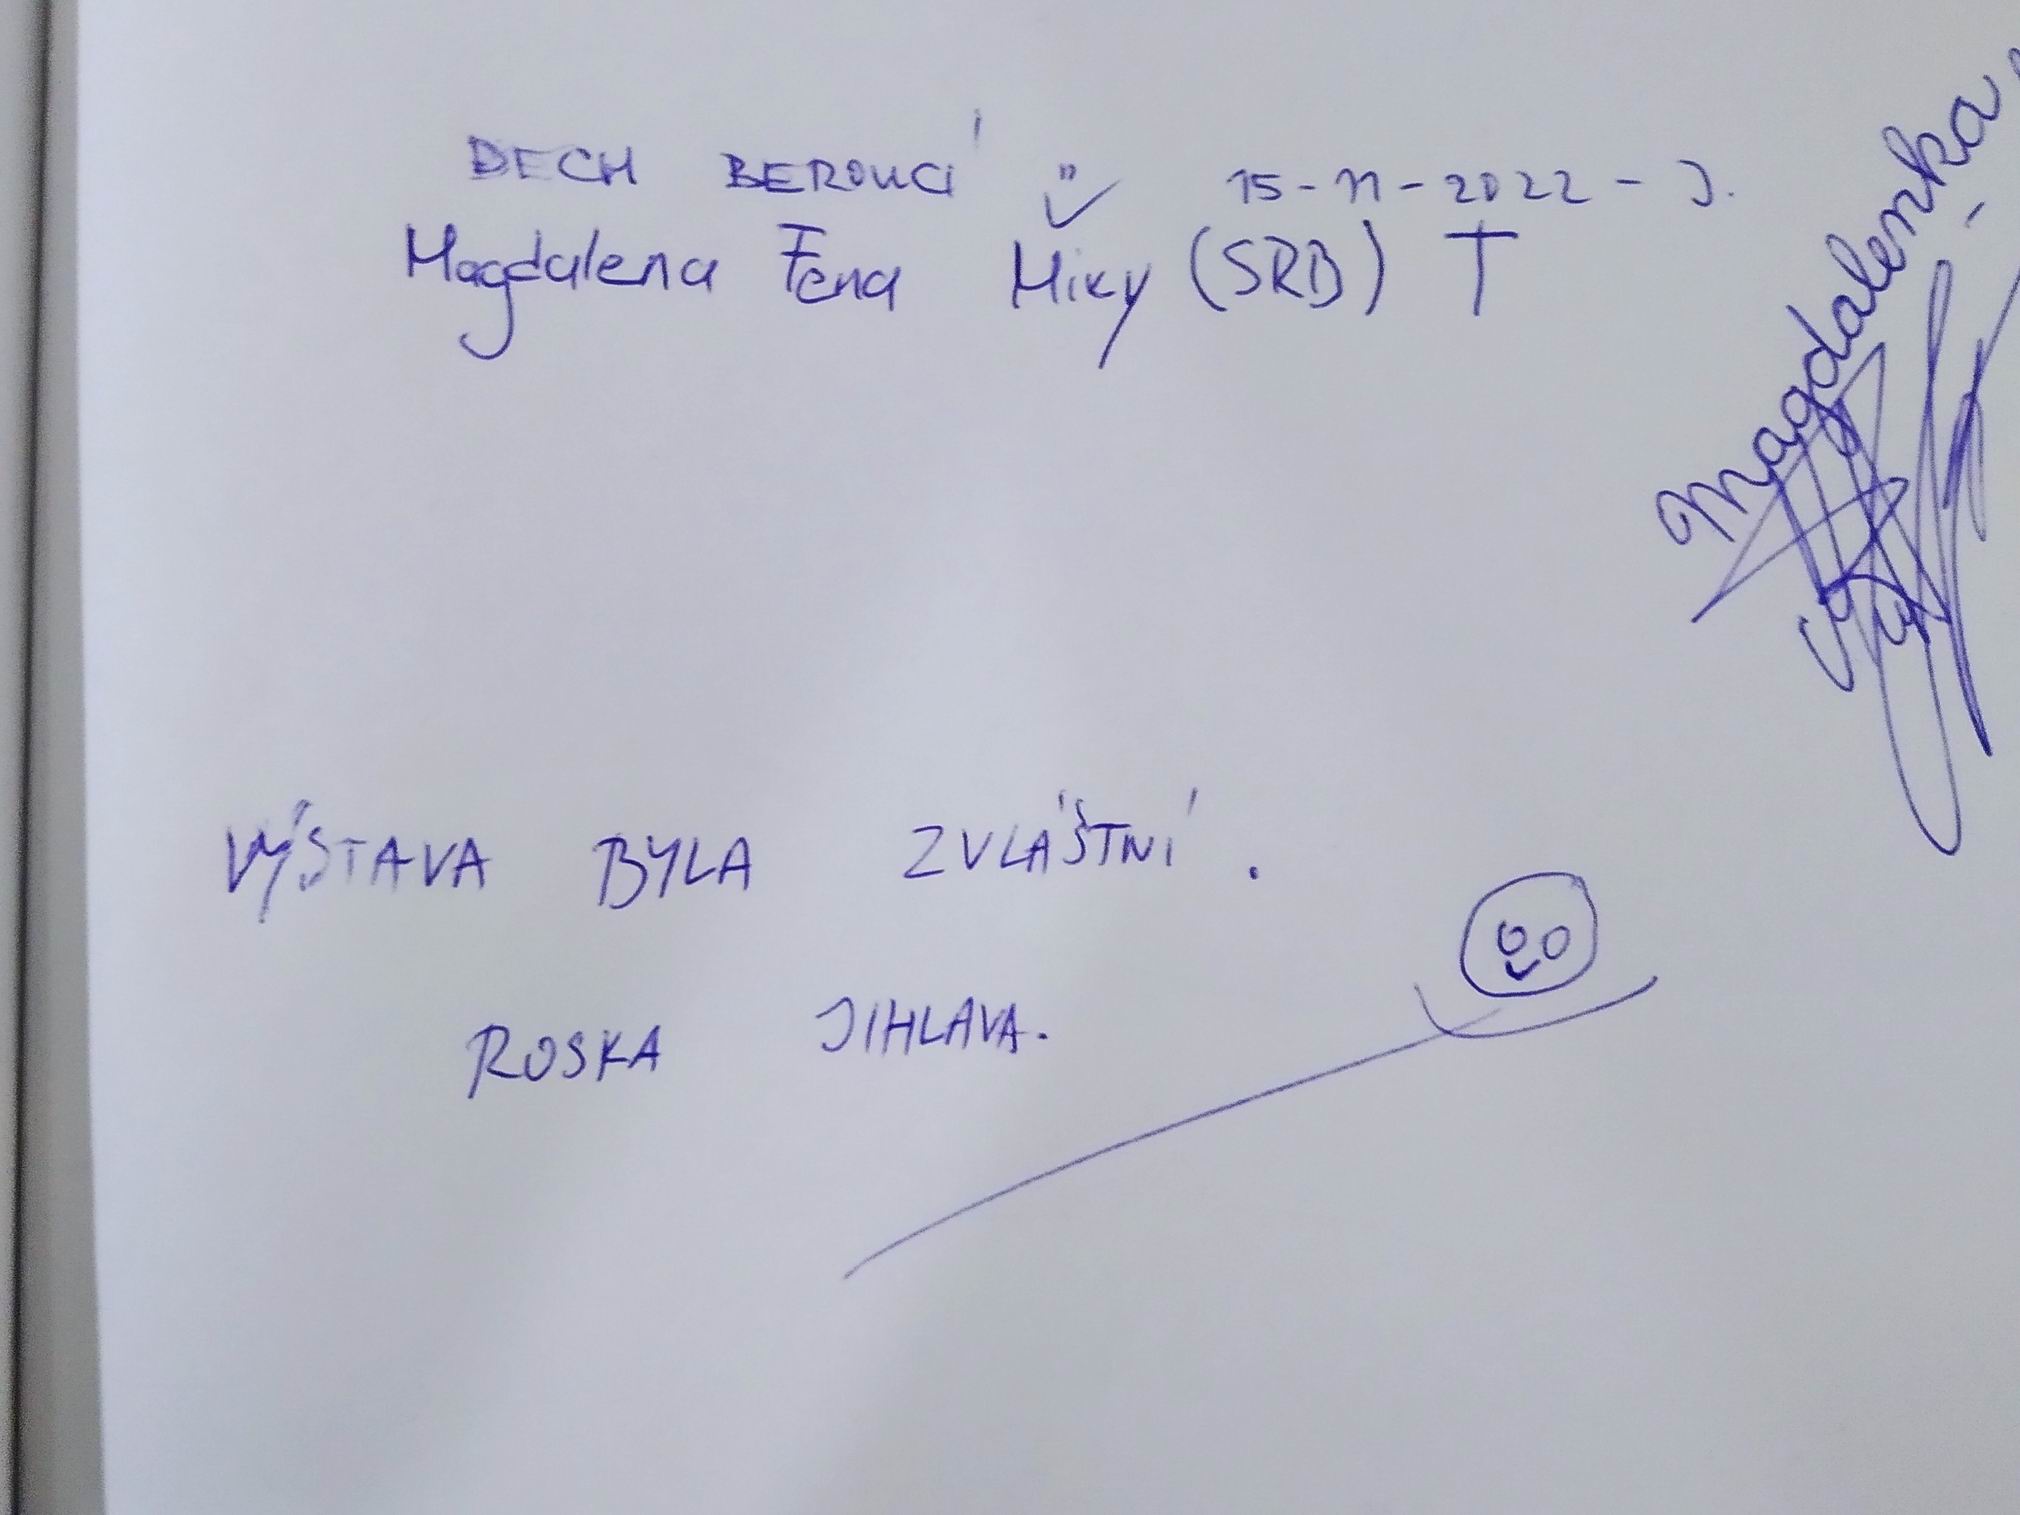 DECH BEROUCÍ 15-11-2022 - J.
Magdalena Fena Miky (SRB) T
Magdalenka
VÝSTAVA BYLA ZVLÁŠTNÍ.
ROSKA JIHLAVA.